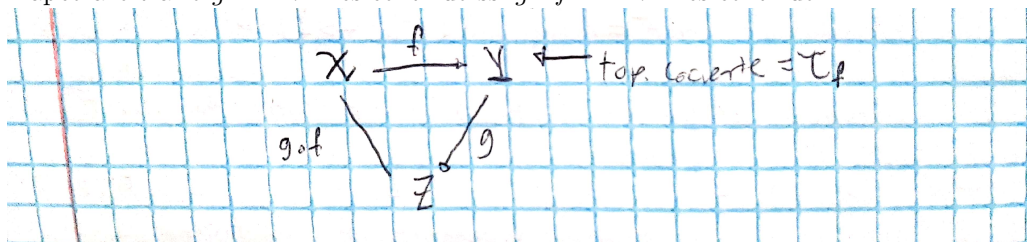 X f Y ← top. cociente = τ_f
g∘f g
Z